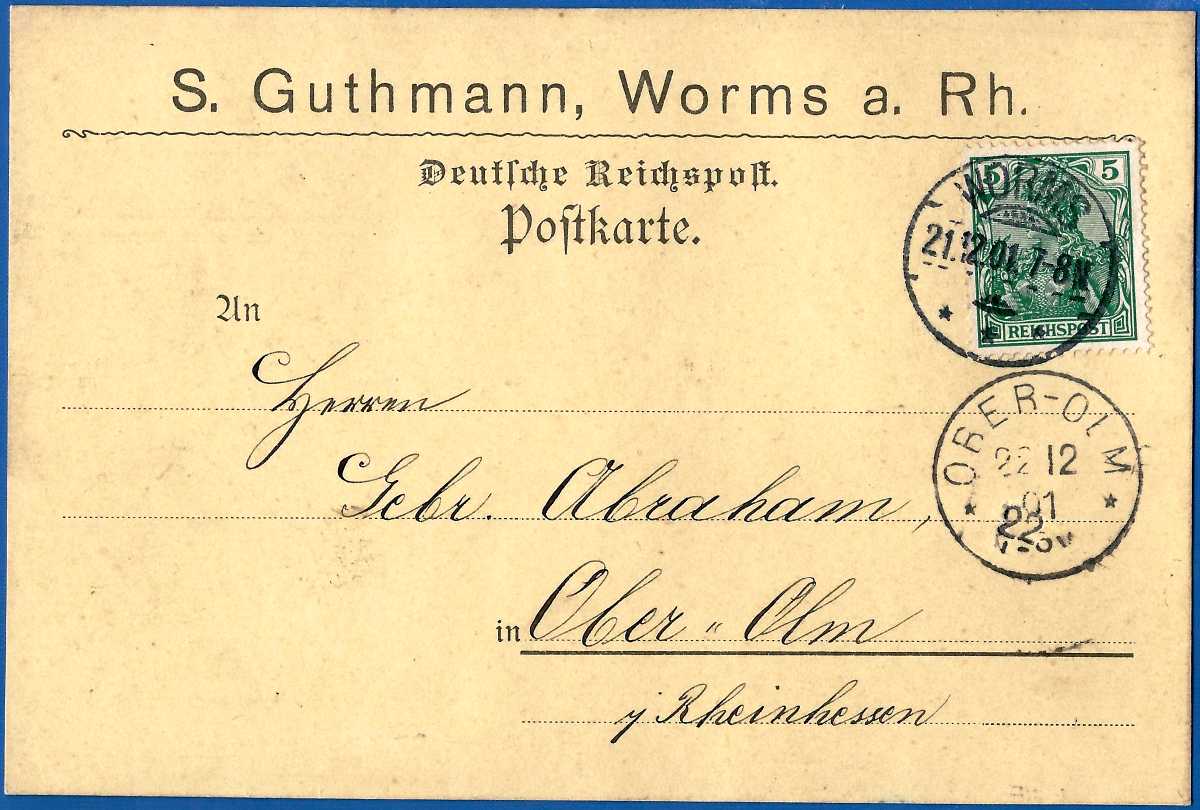 S. Guthmann, Worms a. Rh.
Deutsche Reichspost.
Postkarte.
5 5
WORMS
21.12.01. 7-8N
REICHSPOST
An
Herren
OBER-OLM
22 12
01
Gebr. Abraham,
in Ober-Olm
Rheinhessen